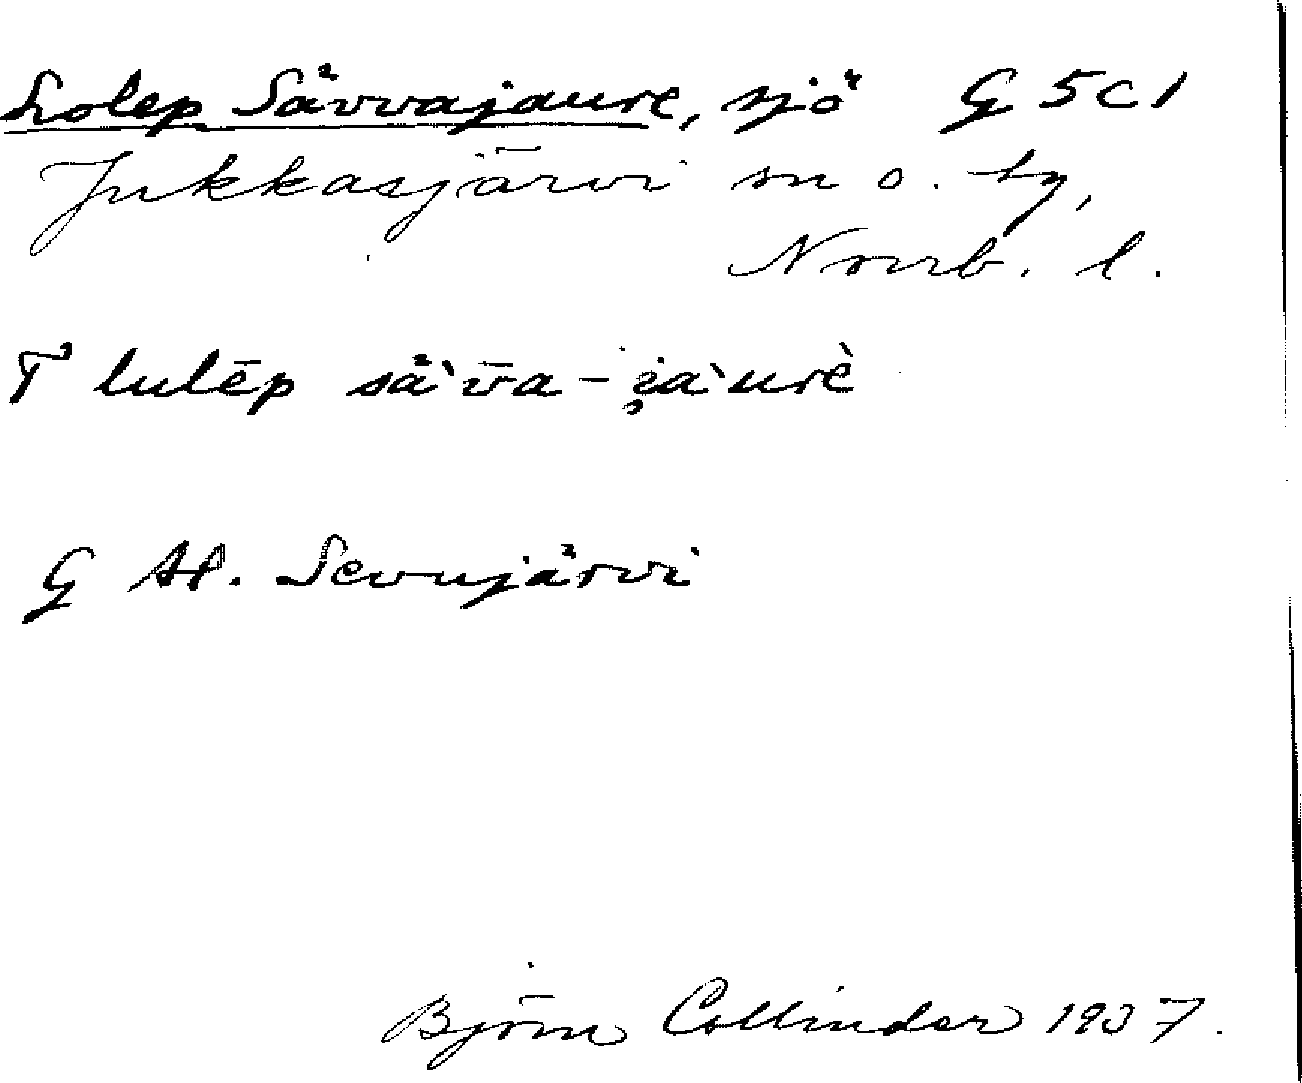 Lolep Sävvajaure, sjö G 5 c 1
Jukkasjärvi sn o. tg,
Norrb. l.
T lulēp sä̀v̄a-i̯àurè
G St. Sevujärvi
Björn Collinder 1937.